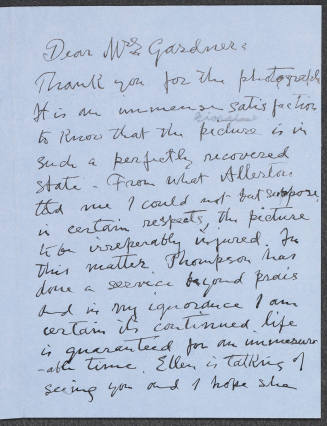 Dear Mrs Gardner:
Thank you for the photograph
It is an immense satisfaction
to know that the picture is in
such a perfectly recovered
state - From what Allerton
told me I could not but suppose,
in certain respects, the picture
to be irreperably injured. In
this matter Thompson has
done a service beyond prais
and in my ignorance I am
certain its continued life
is guaranteed for an immesur
-able time. Ellen is talking of
seeing you and I hope she